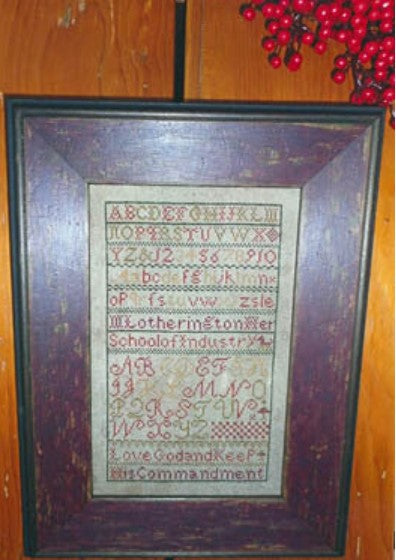 ABCDEFGHIJKLM
NOPQRSTUVWX
YZ&12 34 56 78 910
abcdefghijklmnx
opqrfstuvw zsle
M Lotherington Her
School of Industry
AB CD EF
MNO
PQRSTUV
WXYZ
Love God and Keep
His Commandment